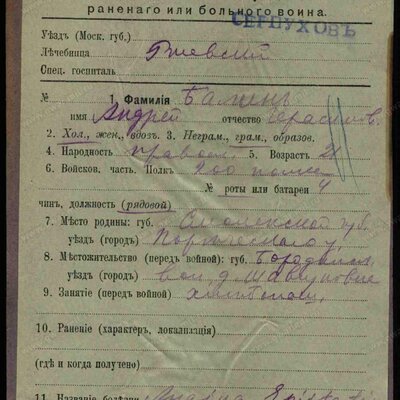 раненаго или больного воина.
СЕРПУХОВЪ
Уѣздъ (Моск. губ.)
Лѣчебница Ржевский
Спец. госпиталь
№ 1. Фамилія
имя Андрей отчество Герасимов.
2. Хол., жен., вдов. 3. Неграм., грам., образов.
4. Народность правосл. 5. Возрастъ 21
6. Войсков. часть. Полкъ 200 полкъ
№ роты или батареи 4
чинъ, должность (рядовой)
7. Мѣсто родины: губ. Смоленской губ.
уѣздъ (городъ)
8. Мѣстожительство (передъ войной): губ.
уѣздъ (городъ) вол. д.
9. Занятіе (передъ войной)
10. Раненіе (характеръ, локализація)
(гдѣ и когда получено)
11. Названіе болѣзни